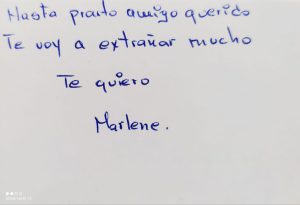 Hasta pronto amigo querido
Te voy a extrañar mucho
Te quiero
Marlene.